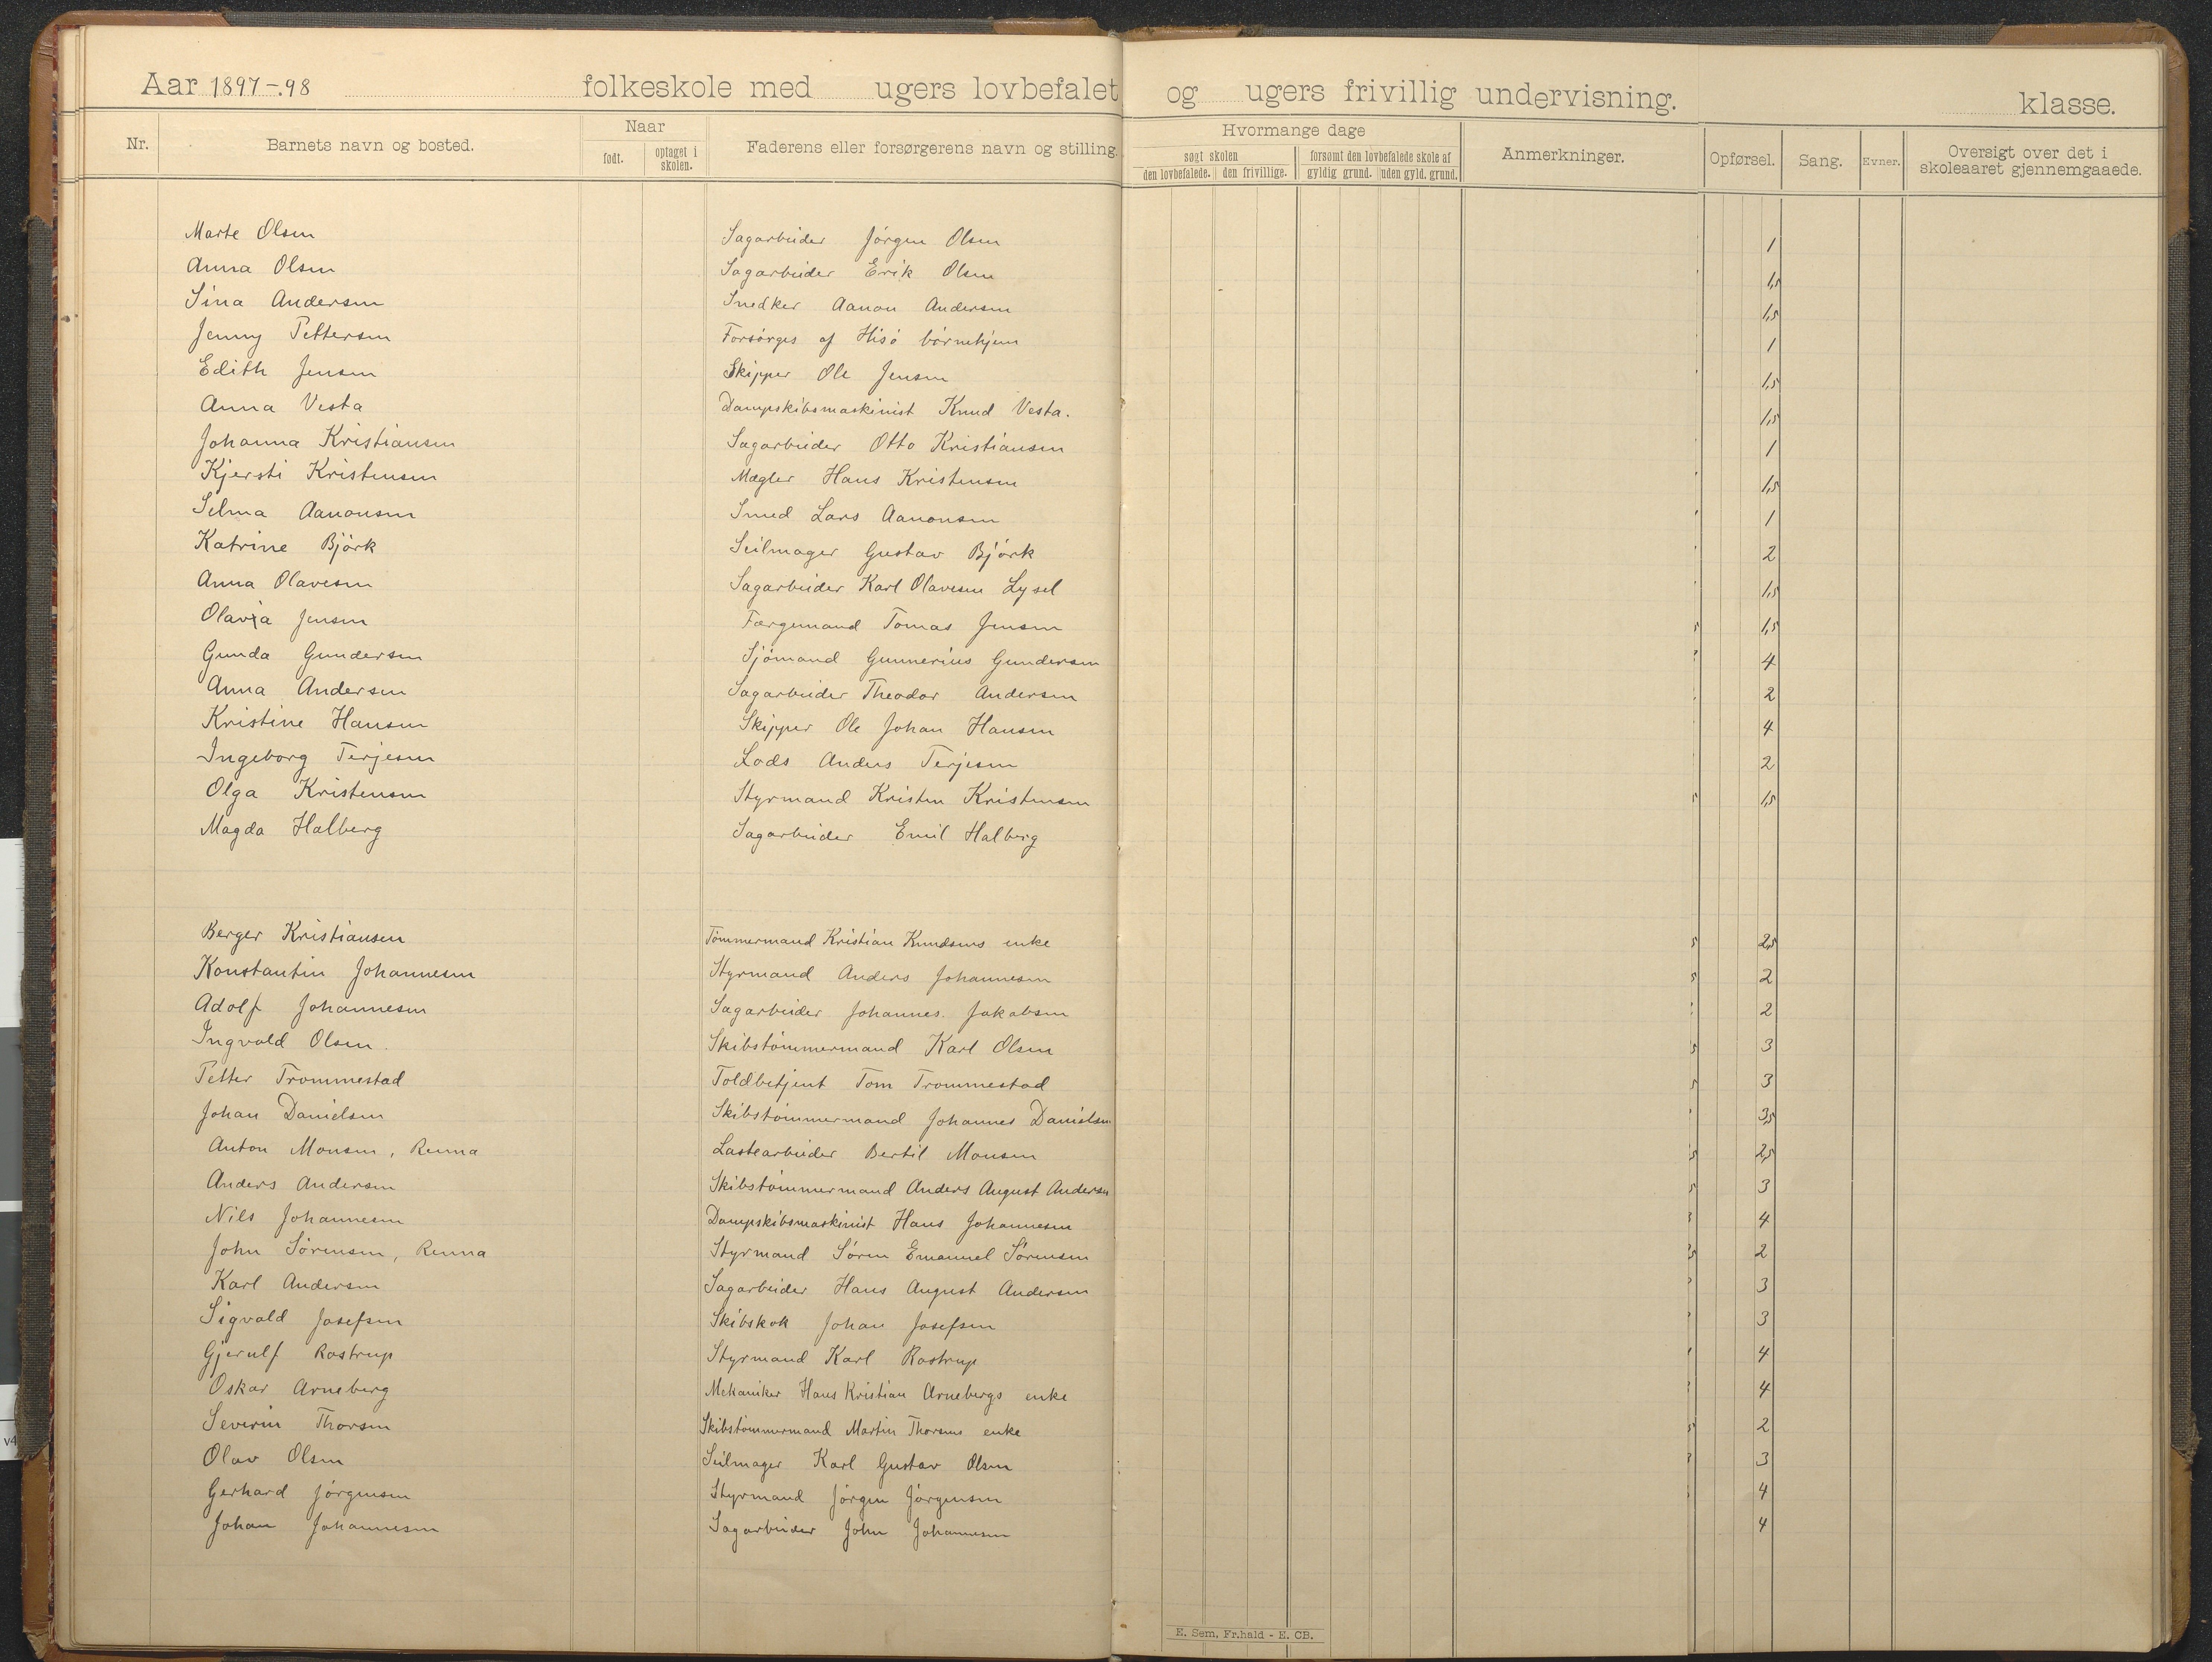 Aar 1897-98 folkeskole med ugers lovbefalet og ugers frivillig undervisning. klasse.
Nr. Barnets navn og bosted. Naar født. optaget i skolen. Faderens eller forsørgerens navn og stilling. Hvormange dage søgt skolen den lovbefalede. den frivillige. forsømt den lovbefalede skole af gyldig grund. uden gyld. grund. Anmerkninger. Opførsel. Sang. Evner. Oversigt over det i skoleaaret gjennemgaaede.
Marte Olsen Sagarbeider Jörgen Olsen 1
Anna Olsen Sagarbeider Erik Olsen 1,5
Sina Andersen Snedker Aanon Andersen 1,5
Jenny Pettersen Forsörges af Hisö börnehjem 1
Edith Jensen Skipper Ole Jensen 1,5
Anna Vesta Dampskibsmaskinist Knud Vesta. 1,5
Johanna Kristiansen Sagarbeider Otto Kristiansen 1
Kjersti Kristensen Mægler Hans Kristensen 1,5
Selma Aanonsen Smed Lars Aanonsen 1
Katrine Björk Seilmager Gustav Björk 2
Anna Olavesen Sagarbeider Karl Olavesen Lysel 1,5
Olavia Jensen Færgemand Tomas Jensen 1,5
Gunda Gundersen Sjömand Gunnerius Gundersen 4
Anna Andersen Sagarbeider Theodor Andersen 2
Kristine Hansen Skipper Ole Johan Hansen 4
Ingeborg Terjesen Lods Anders Terjesen 2
Olga Kristensen Styrmand Kristen Kristensen 1,5
Magda Halberg Sagarbeider Emil Halberg
Berger Kristiansen Tömmermand Kristian Knudsens enke 2,5
Konstantin Johannesen Styrmand Anders Johannesen 2
Adolf Johannesen Sagarbeider Johannes. Jakobsen 2
Ingvald Olsen. Skibstömmermand Karl Olsen 3
Petter Trommestad Toldbetjent Tom Trommestad 3
Johan Danielsen Skibstömmermand Johannes Danielsen 3,5
Anton Monsen, Renna Lastearbeider Bertil Monsen 2,5
Anders Andersen Skibstömmermand Anders August Andersen 3
Nils Johannesen Dampskibsmaskinist Hans Johannesen 4
John Sörensen, Renna Styrmand Sören Emanuel Sörensen 2
Karl Andersen Sagarbeider Hans August Andersen 3
Sigvald Josefsen Skibskok Johan Josefsen 3
Gjerulf Rostrup Styrmand Karl Rostrup 4
Oskar Arneberg Mekaniker Hans Kristian Arnebergs enke 4
Severin Thorsen Skibstömmermand Martin Thorsens enke 2
Olav Olsen Seilmager Karl Gustav Olsen 3
Gerhard Jörgensen Styrmand Jörgen Jörgensen 4
Johan Johannesen Sagarbeider John Johannesen 4
E. Sem, Fr.hald - E. CB.